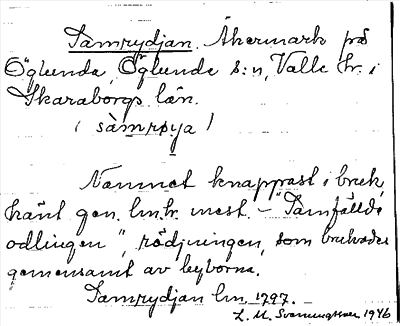 Samrydjan. Åkermark på
Öglunda, Öglunda s:n, Valle hr. i
Skaraborgs län.
( sàmrøya )
Namnet knappast i bruk,
känt gen. lm.hr. mest. – "Samfällda
odlingen", rödjningen, som brukades
gemensamt av byborna.
Samrydjan lm. 1797.
1946